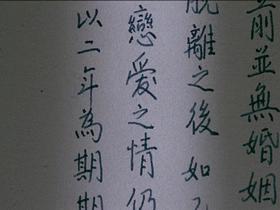 前並無婚姻
脫離之後如
戀愛之情仍
以二年為期期